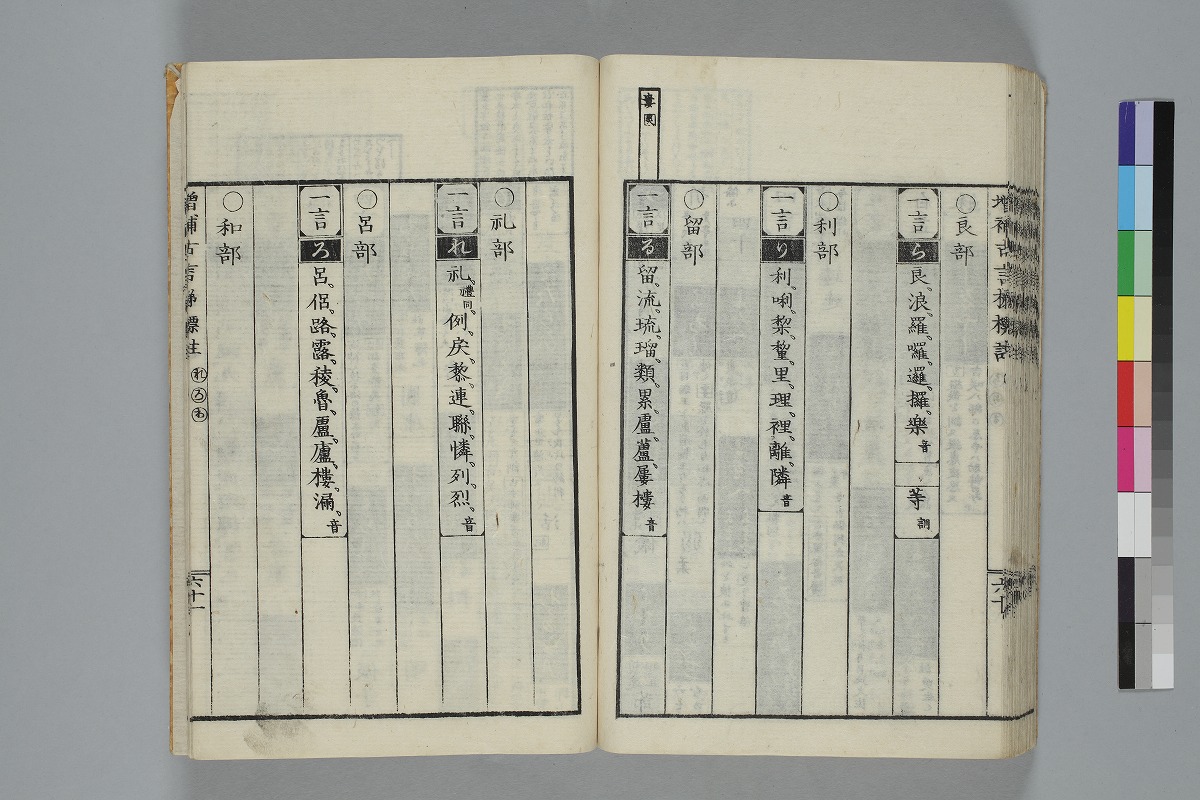 増補古言梯標註
六十
○良部
一言 ら 良、浪、羅、囉、邏、攞、樂音 等訓
○利部
一言 り 利、唎、棃、𨤲、里、理、裡、離、隣音
○留部
一言 る 留、流、琉、瑠、類、累、盧、蘆、屢、樓音
○礼部
一言 れ 礼、禮同、例、戾、黎、連、聯、憐、列、烈、音
○呂部
一言 ろ 呂、侶、路、露、稜、魯、盧、廬、樓、漏、音
○和部
増補古言梯標註 れ ろ わ
六十一